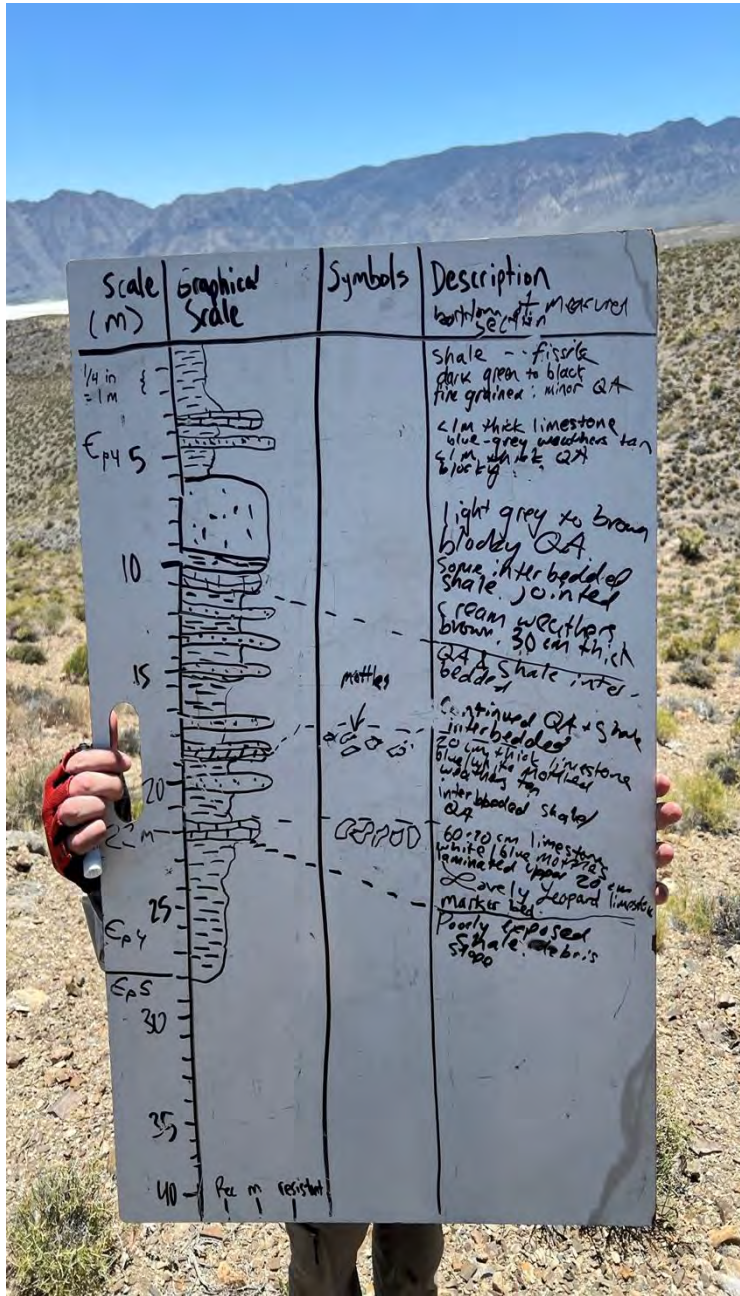 Scale
(m)
Graphical
Scale
Symbols
Description
of measured
section
1/4 in
= 1 m
Єp4
5
10
15
20
22 m
25
Єp4
Єp5
30
35
40
Rec m resistant
mottles
shale -- fissile
dark green to black
fine grained: minor QA
<1m thick limestone
blue-grey weathers tan
<1m thick QA
blocky
light grey to brown
blocky QA.
Some interbedded
shale. jointed
cream weathers
brown. 30 cm thick
QA & Shale inter-
bedded
Continued QA + Shale
interbedded
20 cm thick limestone
blue/white mottled
weathers tan
interbbeded shale/
QA
60-70 cm limestone
white/blue mottles
laminated upper 20 cm
Lovely Leopard limestone
marker bed.
Poorly exposed
Shale. debris
slope